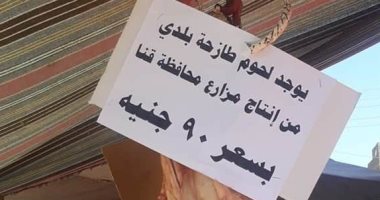 يوجد لحوم طازحة بلدي
من إنتاج مزارع محافظة قنا
بسعر ٩٠ جنيه